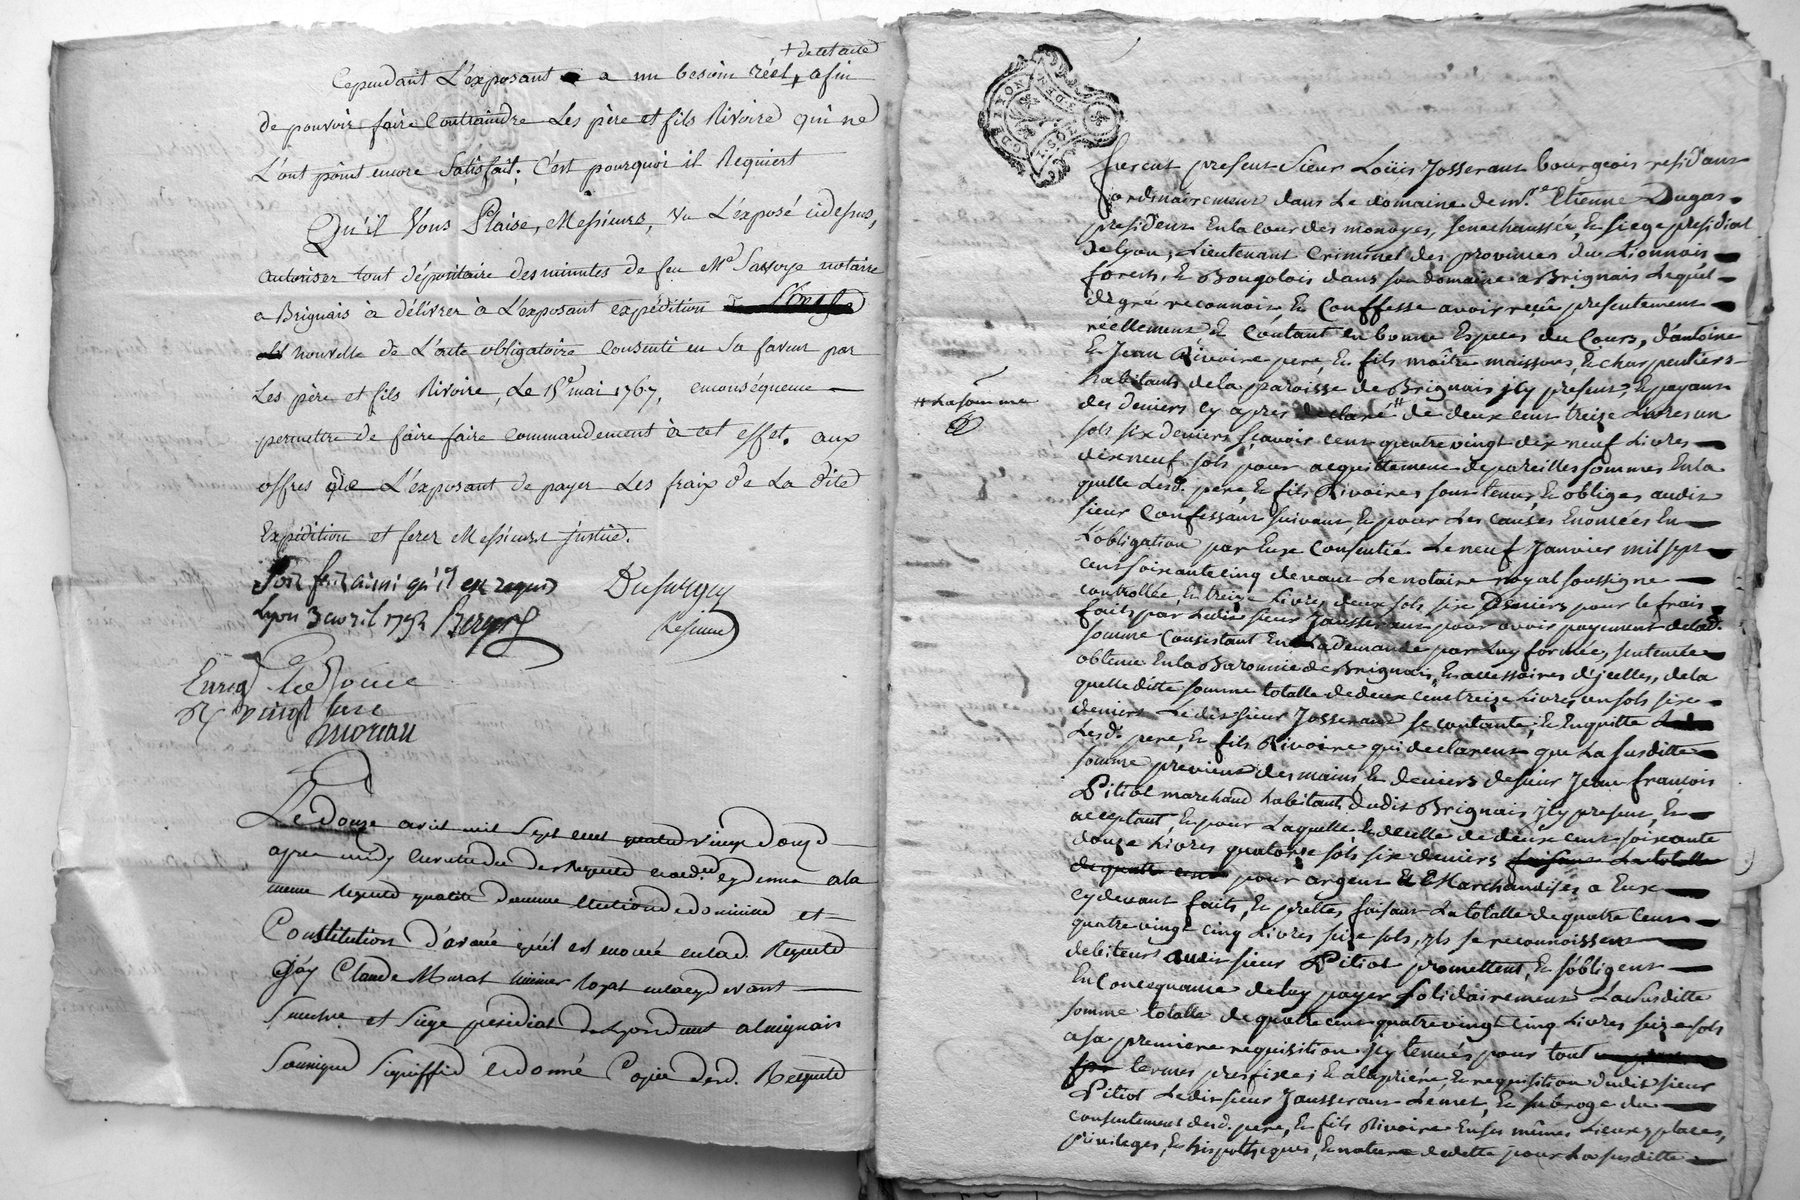 + de cet acte
Cependant L'exposant a un besoin réel + afin
de pouvoir faire Contraindre Les père et fils Rivoire qui ne
L'ont point encore Satisfait. C'est pourquoi il Requiert
Qu'il Vous Plaise, Messieurs, Vu L'exposé cidessus,
autoriser tout dépositaire des minutes de feu Me Savoye notaire
a Brignais à délivrer à L'exposant expédition
nouvelle de L'acte obligatoire Consenti en Sa faveur par
Les père et fils Rivoire, Le 15e mai 1767, enconséquence
permettre de faire faire Commandement à cet effet. aux
offres que L'exposant de payer Les fraix de La dite
Expédition et ferez Messieurs justice.
Soit fait ainsi qu'il est requis
Lyon 3 avril 1792
Le Douze avril mil Sept cent quatre vingt Douze
apres midy En vertu de
meme Requete
Constitution d'avoué qu'il est enoncé enlad. Requete
Jay Claude Murat huissier Royal
et Siege présidial de Lyon
Soussigné Signiffié et donné Copie de lad. Requete
GDE LYON
furent present Sieur Loüis Josserant bourgeois residant
ordinairement dans Le domaine de mre Etienne Dugas
president En la cour des monoyes, senechaussée, & siege presidial
de Lyon, Lieutenant Criminel des provinces du Lionnois
forests, & Baugolois dans son domaine a Brignais Lequel
de gre reconnoit & Conffesse avoir reçû presentement
reellement & Contant en bonne Especes du Cours, d'antoine
& Jean Rivoire pere, & fils maitre massons, & charpentiers
habitants de la paroisse de Brignais jcy present, & payant
des deniers cy apres declaré # de deux cent treize Livres un
# La somme
sols six deniers sçavoir cent quatre vingt dix neuf Livres
dix neuf sols pour acquittement de pareilles sommes En la
quelle Lesd. pere, & fils Rivoires sont tenus, & obliges audit
sieur Confessant suivant, & pour Les causes Enoncées En
L'obligation par Eux Consentie Le neuf Janvier mil sept
cent soixante cinq devant Le notaire royal soussigne
controllée, & treize Livres deux sols six Deniers pour le frais
faits par Ledit sieur Jausserant pour avoir payement delad.
somme Consistant En La demande par Luy formée, sentence
obtenue En la Baronnie de Brignais, & accessoires d'jcelles, de la
quelle ditte somme totalle de deux cent treize Livres un sols six
deniers Ledit sieur Josserand se contante, & En quitte
Lesd. pere, & fils Rivoire qui declarent que La susditte
somme provient des mains, & deniers de sieur Jean francois
Pitiot marchand habitant dudit Brignais jcy present, &
acceptant, & pour Laquelle & de celle de deux cent soixante
douze Livres quatorze sols six deniers faisant La totalle
de quatre cent pour argent & Marchandises a Eux
cy devant faits, & prettes, faisant La totalle de quatre cent
quatre vingt cinq Livres seize sols, jls se reconnoissent
debiteurs audit sieur Pitiot promettent, & s'obligent
En Consequance de Luy payer solidairement La susditte
somme totalle de quatre cent quatre vingt cinq Livres seize sols
a sa premiere requisition jcy tenues pour tout
termes prefixe; & a la priere, & requisition dudit sieur
Pitiot Ledit sieur Jausserant Lemet, & subroge du
consentement desd. pere, & fils Rivoire En ses mêmes Lieux, places,
privileges, & hispotheques, & nature de dette pour La susditte